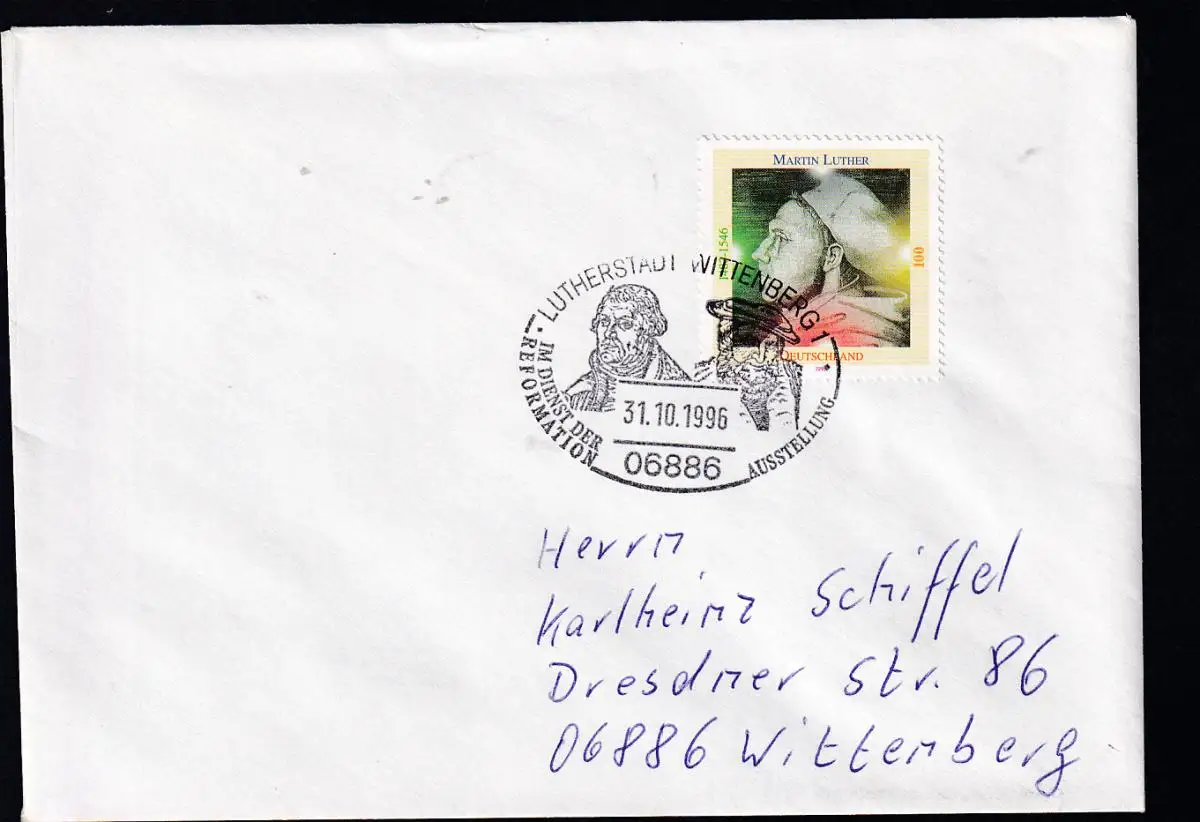 MARTIN LUTHER
1546
100
DEUTSCHLAND
LUTHERSTADT WITTENBERG 1
IM DIENST DER
REFORMATION
AUSSTELLUNG
31.10.1996
06886
Herrn
Karlheinz Schiffel
Dresdner Str. 86
06886 Wittenberg